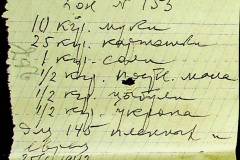 Док № 153
10 кгр. муки
25 кгр. картошки
1 кгр. соли
1/2 кгр. пост. масла
1/2 кгр. цыбули
1/2 кгр. укропа
Для 145 пленных и